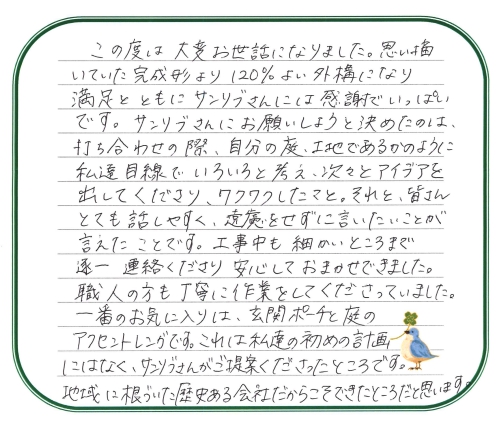 この度は大変お世話になりました。思い描
いていた完成形より120%よい外構になり
満足とともにサンリブさんには感謝でいっぱい
です。サンリブさんにお願いしようと決めたのは、
打ち合わせの際、自分の庭、土地であるかのように
私達目線でいろいろと考え、次々とアイデアを
出してくださり、ワクワクしたこと。それと、皆さん
とても話しやすく、遠慮をせずに言いたいことが
言えたことです。工事中も細かいところまで
逐一連絡くださり安心しておまかせできました。
職人の方も丁寧に作業をしてくださっていました。
一番のお気に入りは、玄関ポーチと庭の
アクセントレンガです。これは私達の初めの計画
にはなく、サンリブさんがご提案くださったところです。
地域に根づいた歴史ある会社だからこそできたところだと思います。